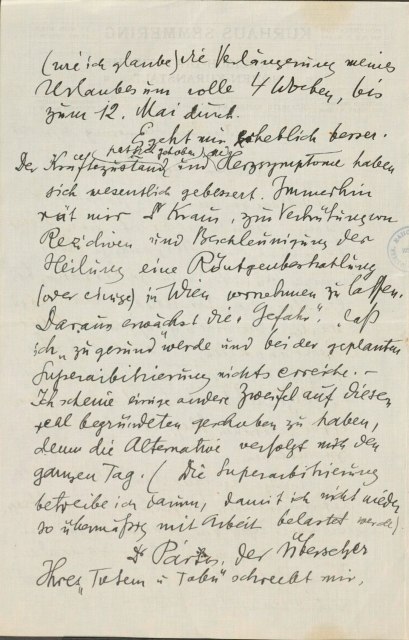 KURHAUS SEMMERING
(wie ich glaube) die Verlängerung meines
Urlaubes um volle 4 Wochen, bis
zum 12. Mai durch.
Es geht mir erheblich besser.
Der Kräftezustand hat sich gehoben, die
und Herzsymptome haben
sich wesentlich gebessert. Immerhin
rät mir Dr Kraus, zur Verhütung von
Rezidiven und Beschleunigung der
Heilung eine Röntgenbestrahlung
(oder einige) in Wien vornehmen zu lassen.
Daraus erwächst die „Gefahr“, daß
ich „zu gesund“ werde und bei der geplanten
Superarbitrierung nichts erreiche. –
Ich scheine einige andere Zweifel auf diesen
real begründeten geschoben zu haben,
denn die Alternative verfolgt mich den
ganzen Tag. (Die Superarbitrierung
betreibe ich darum, damit ich nicht wieder
so übermäßig mit Arbeit belastet werde).
Dr Pártos, der Übersetzer
Ihres „Totem u Tabu“ schreibt mir,